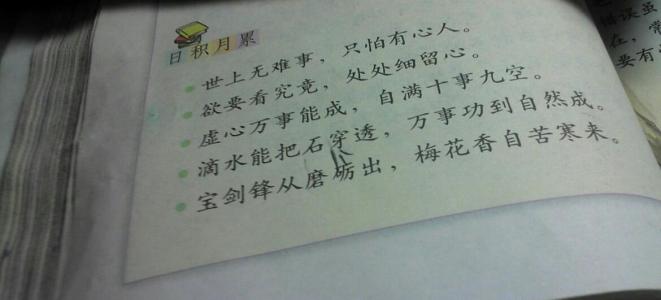 日积月累
世上无难事，只怕有心人。
欲要看究竟，处处细留心。
虚心万事能成，自满十事九空。
滴水能把石穿透，万事功到自然成。
宝剑锋从磨砺出，梅花香自苦寒来。
错误虽
在，常
要有